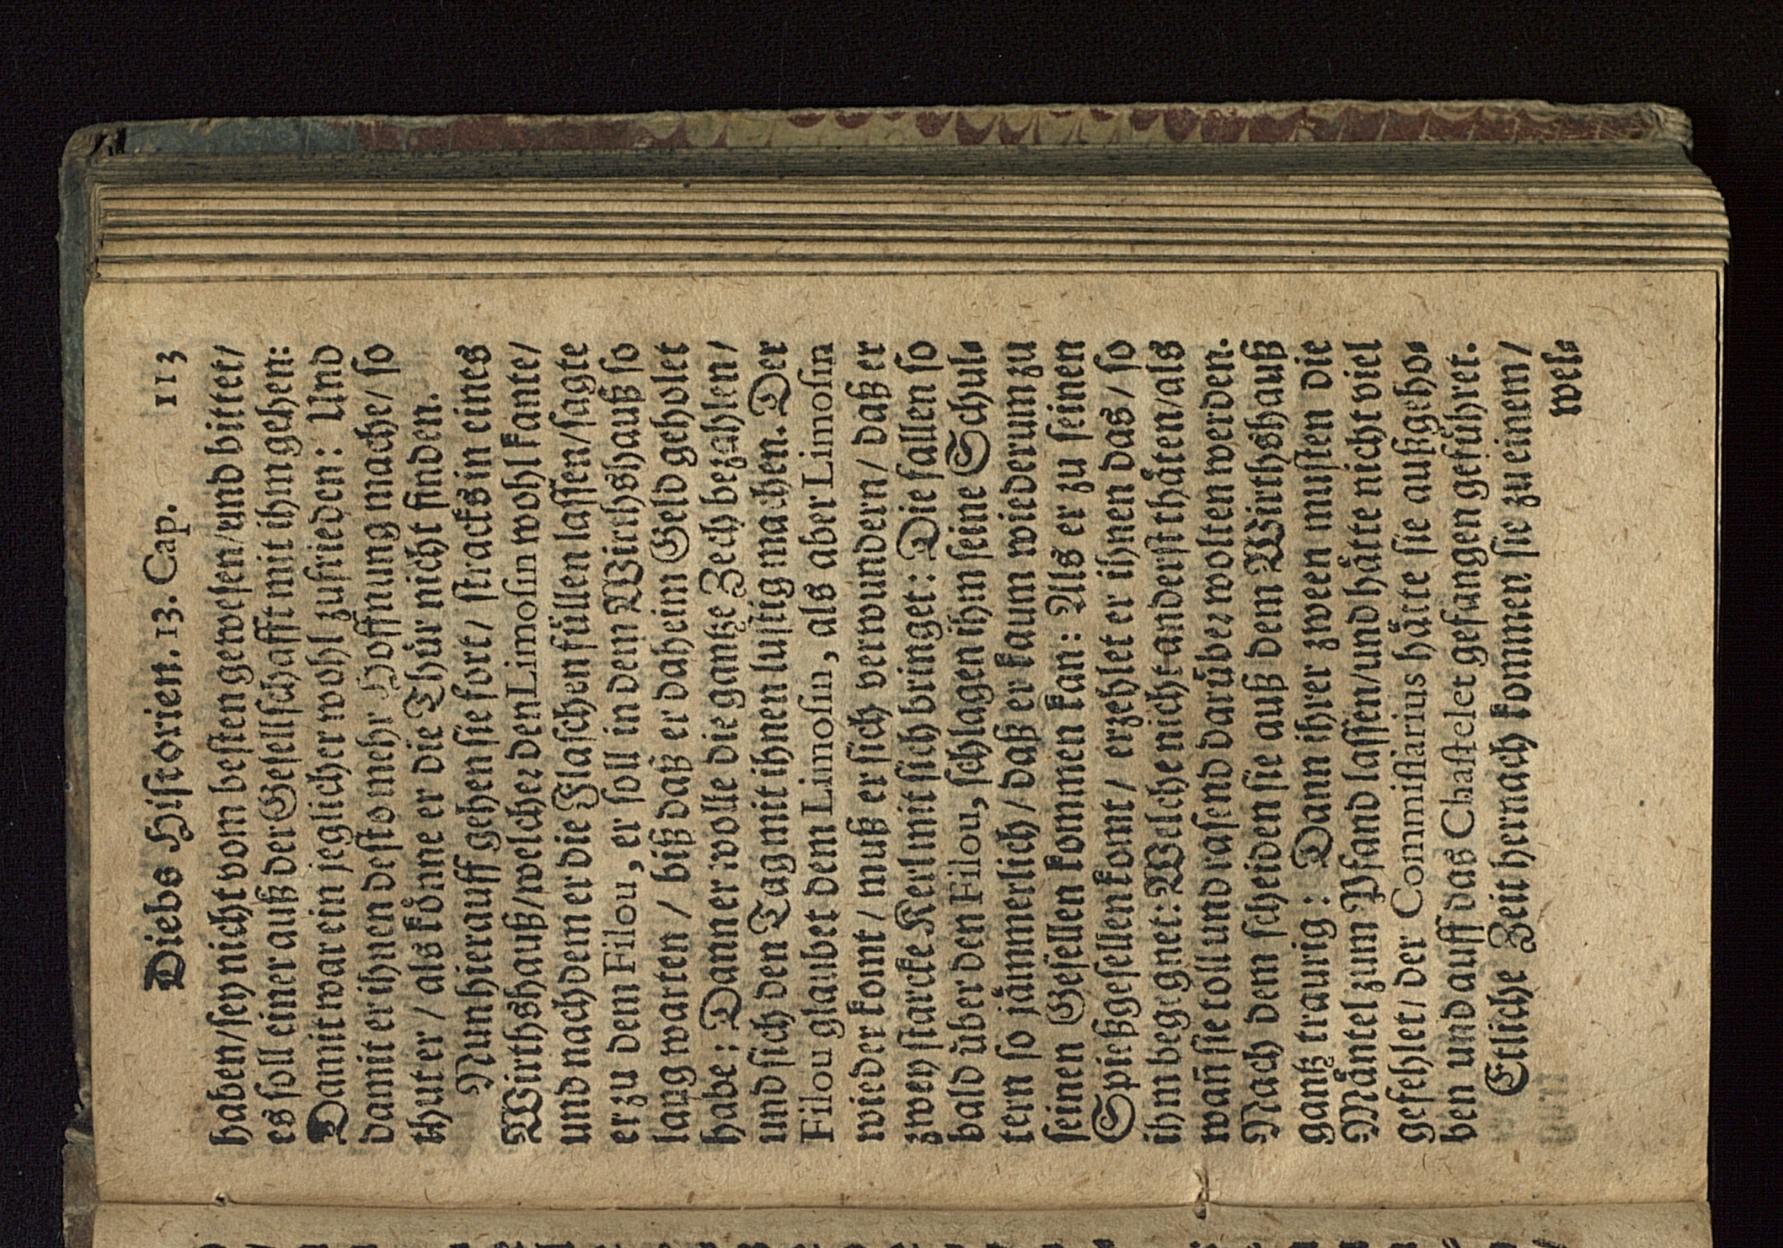 Diebs Hiſtorien. 13. Cap. 113
haben/ſey nicht vom beſten geweſen/und bittet/
es ſoll einer auß der Geſellſchafft mit ihm gehen:
Damit war ein jeglicher wohl zufrieden: Und
damit er ihnen deſto mehr Hoffnung mache/ ſo
thuter / als koͤnne er die Thuͤr nicht finden.
Nun hierauff gehen ſie fort/ ſtracks in eines
Wirthshauß/welcher den Limoſin wohl kante/
und nachdem er die Flaſchen fuͤllen laſſen/ſagte
er zu dem Filou, er ſoll in dem Wirthshauß ſo
lang warten / biß daß er daheim Geld geholet
habe: Dann er wolle die gantze Zech bezahlen/
und ſich den Tag mit ihnen luſtig machen. Der
Filou glaubet dem Limoſin, als aber Limoſin
wieder komt / muß er ſich verwundern/ daß er
zwey ſtarcke Kerl mit ſich bringet: Die fallen ſo
bald uͤber den Filou, ſchlagen ihm ſeine Schul⸗
tern ſo jaͤmmerlich / daß er kaum wiederum zu
ſeinen Geſellen kommen kan: Als er zu ſeinen
Spießgeſellen komt/ erzehlet er ihnen das/ ſo
ihm begegnet: Welche nicht anderſt thaͤten/als
wañ ſie toll und raſend daruͤber wolten werden.
Nach dem ſcheiden ſie auß dem Wirthshauß
gantz traurig: Dann ihrer zween muſten die
Maͤntel zum Pfand laſſen/und haͤtte nicht viel
gefehlet/ der Commiſſarius haͤtte ſie außgeho⸗
ben und auff das Chaſtelet gefangen gefuͤhret.
Etliche Zeit hernach kommen ſie zu einem/
wel⸗